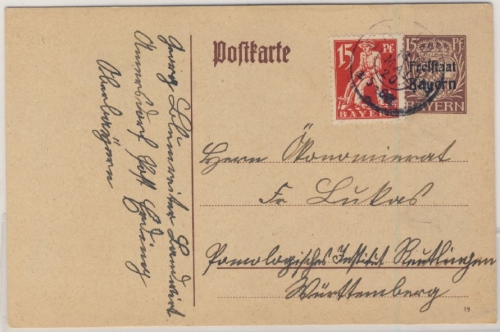 Postkarte
15 Pf
BAYERN
15 Pf
Freistaat
Bayern
BAYERN
Herrn Ökonomierat
Fr. Lukas
Pomologisches Institut Reutlingen
Württemberg
Georg Landwirt
Post
Oberbayern
19